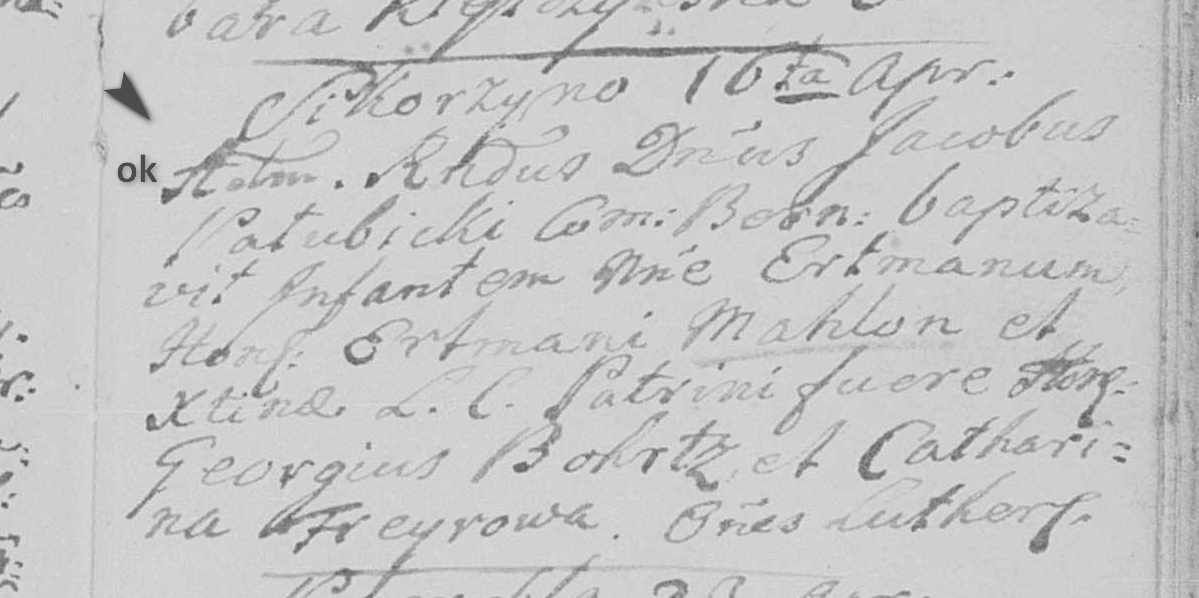 bara
Sikorzyno 16ta Apr:
ok
Adm. Rndus Dnus Jacobus
Patubicki Com: Bern: baptiza=
vit Infantem Nne Ertmanum,
Hones: Ertmani Mahlon et
Xtinæ L. C. Patrini fuere Hones:
Georgius Bohrtz, et Cathari=
na Freyrowa. Oñes Luthers.
23 Apr: